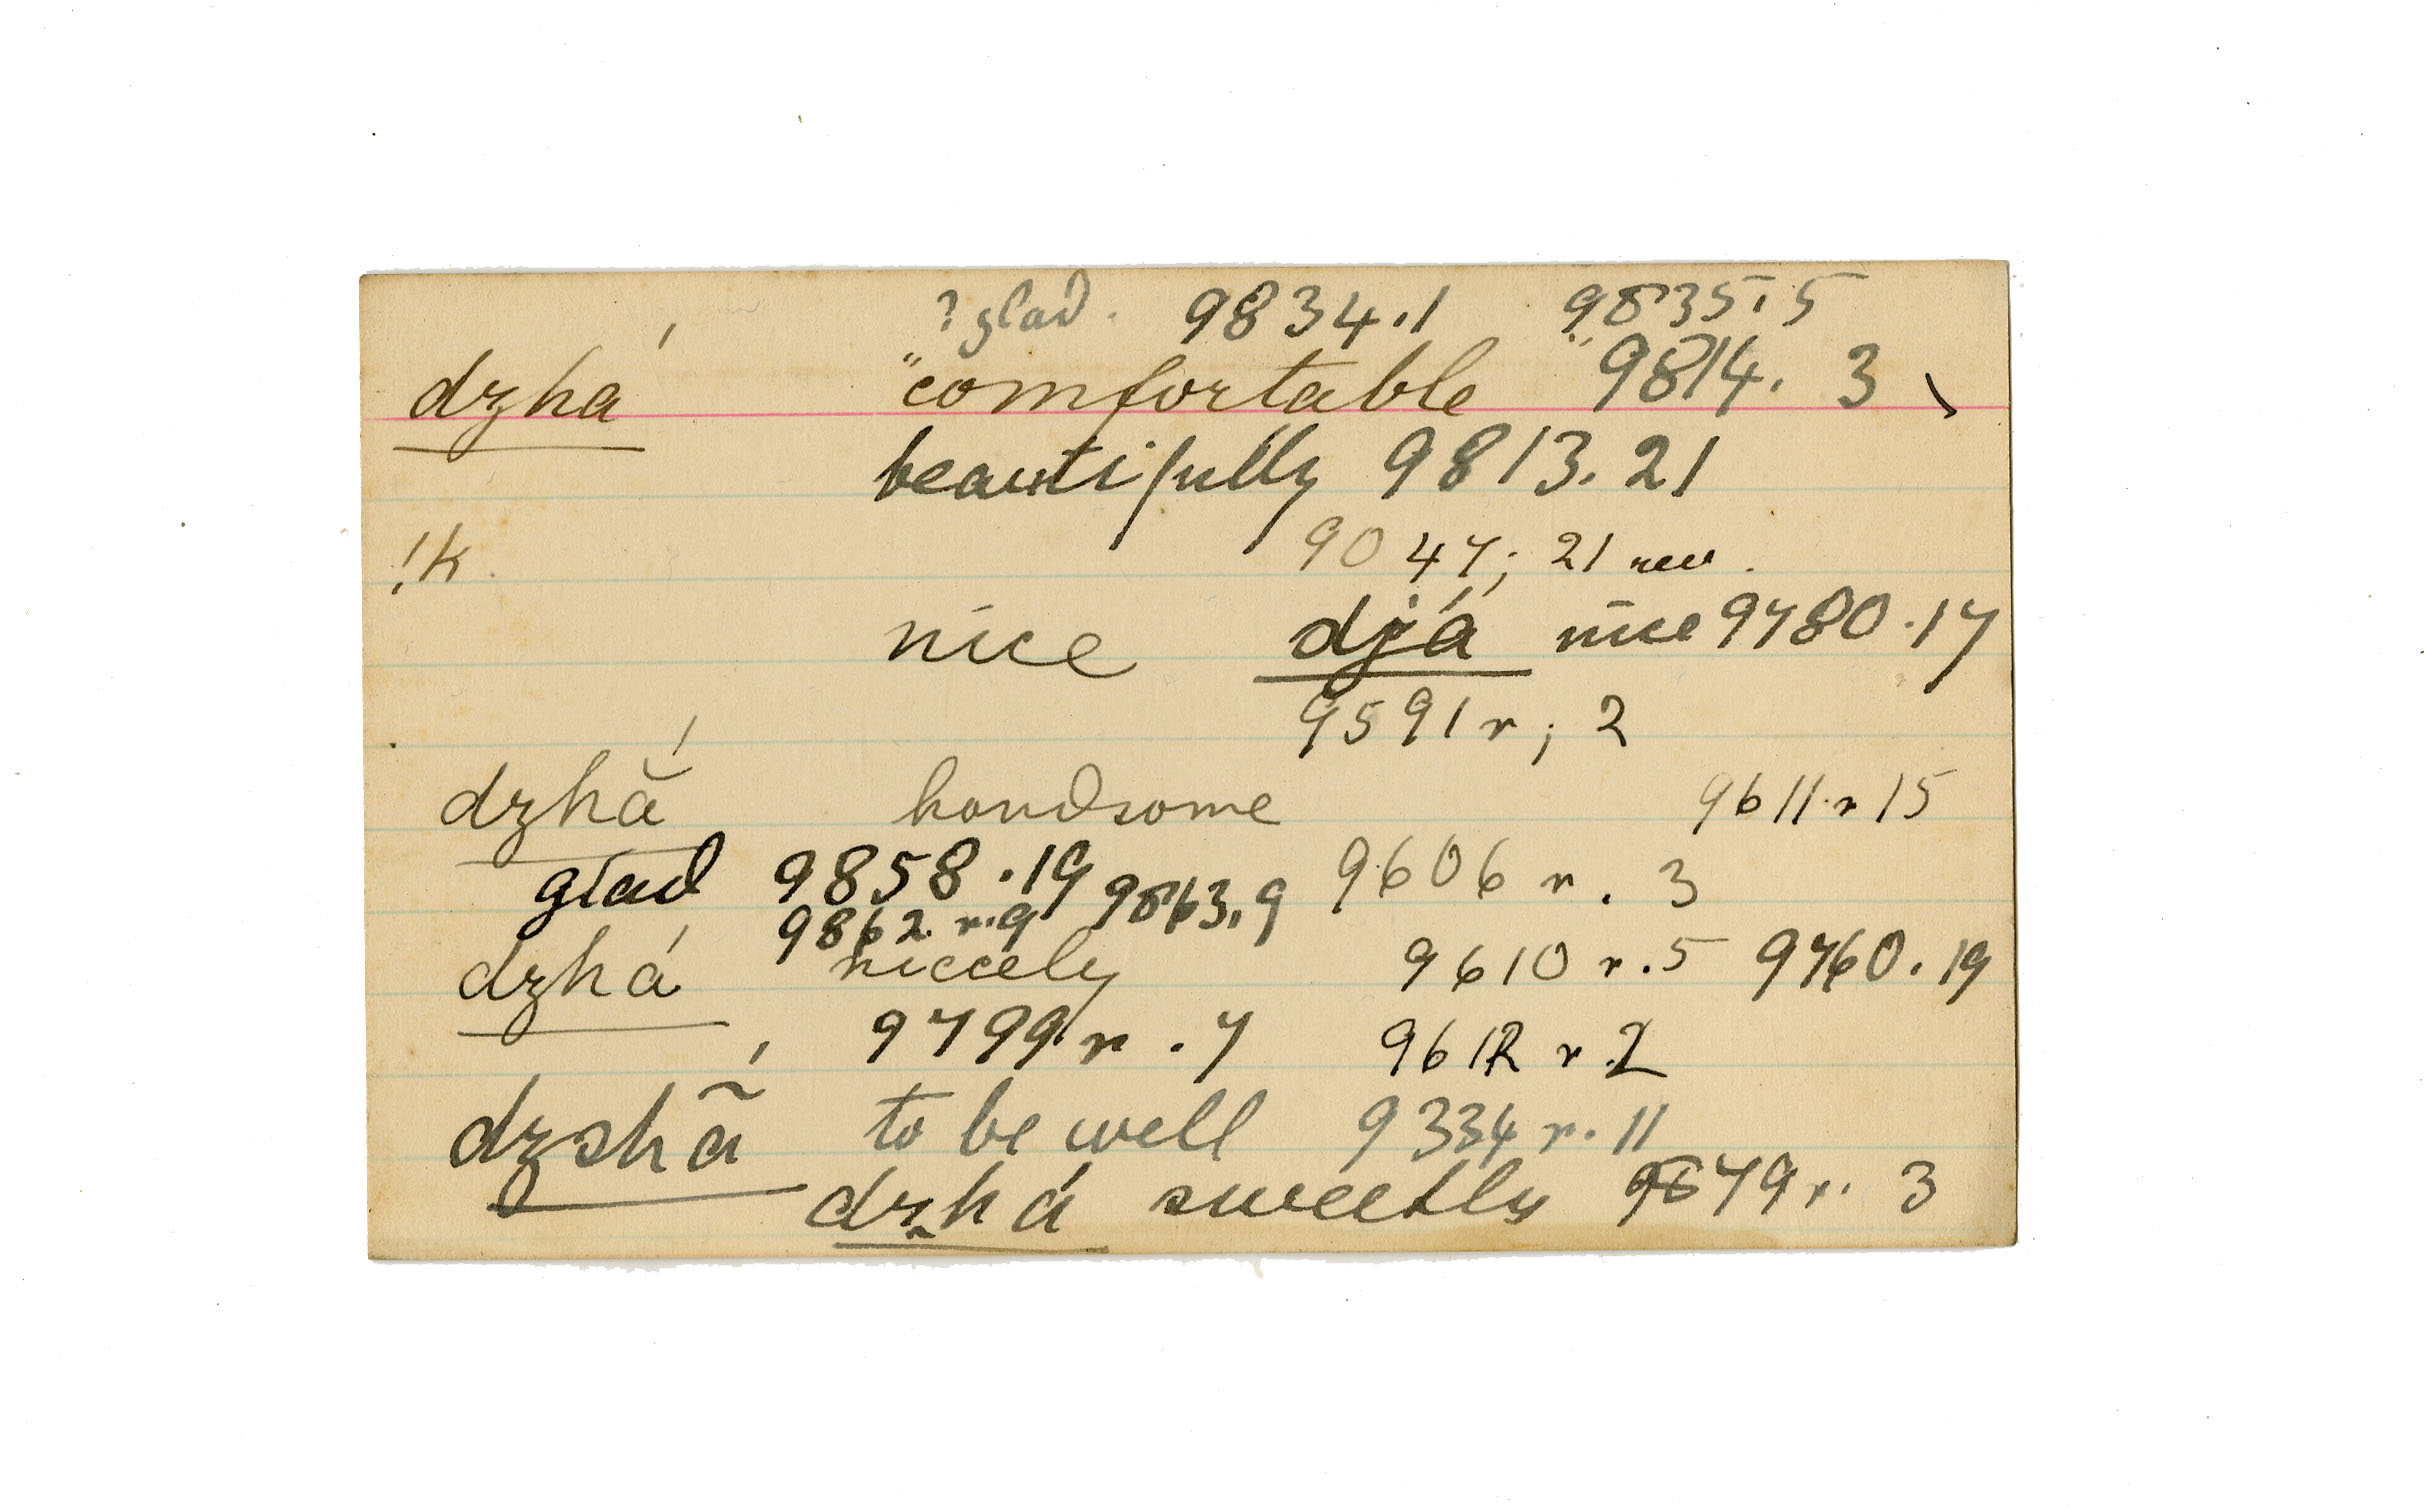 ? glad. 9834.1 9835.5
dzhá "comfortable" 9814. 3
beautifully 9813.21
!k. 9047; 21 rev.
nice djá nice 9780.17
9591 r; 2
dzhā̆́ handsome 9611 r 15
glad 9858.19 9863.9 9606 r. 3
9862. r.9
dzhá niccely 9610 r.5 9760.19
9799 r. 7 9612 r.2
dzshã́ to be well 9334 r. 11
dzhá sweetly 9679 r. 3